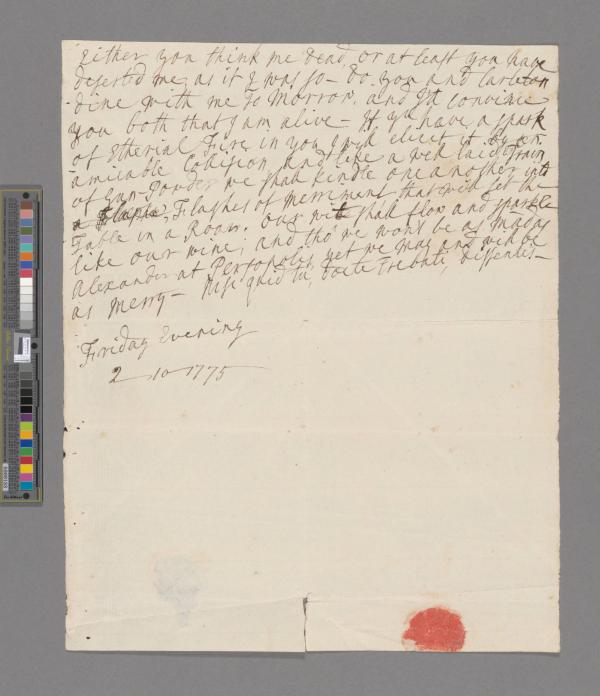 Either you think me dead, or at least you have
deserted me, as if I was so – Do you and Carleton
dine with me To Morrow, and I'll convince
you both that I am alive – If you have a spark
of Etherial Fire in you I will elicit it by an
amicable Collision and like a well laid Train
of Gun-Powder we shall kindle one another into
Flashes of Merriment that will set the
Table in a Roar. our wit shall flow and sparkle
like our wine; and tho' we won't be as mad as
Alexander at Persopolis, yet we may and will be
as merry – Nisi quid tu, docte Trebati, dissentis –
Friday Evening
2 – 10 – 1775